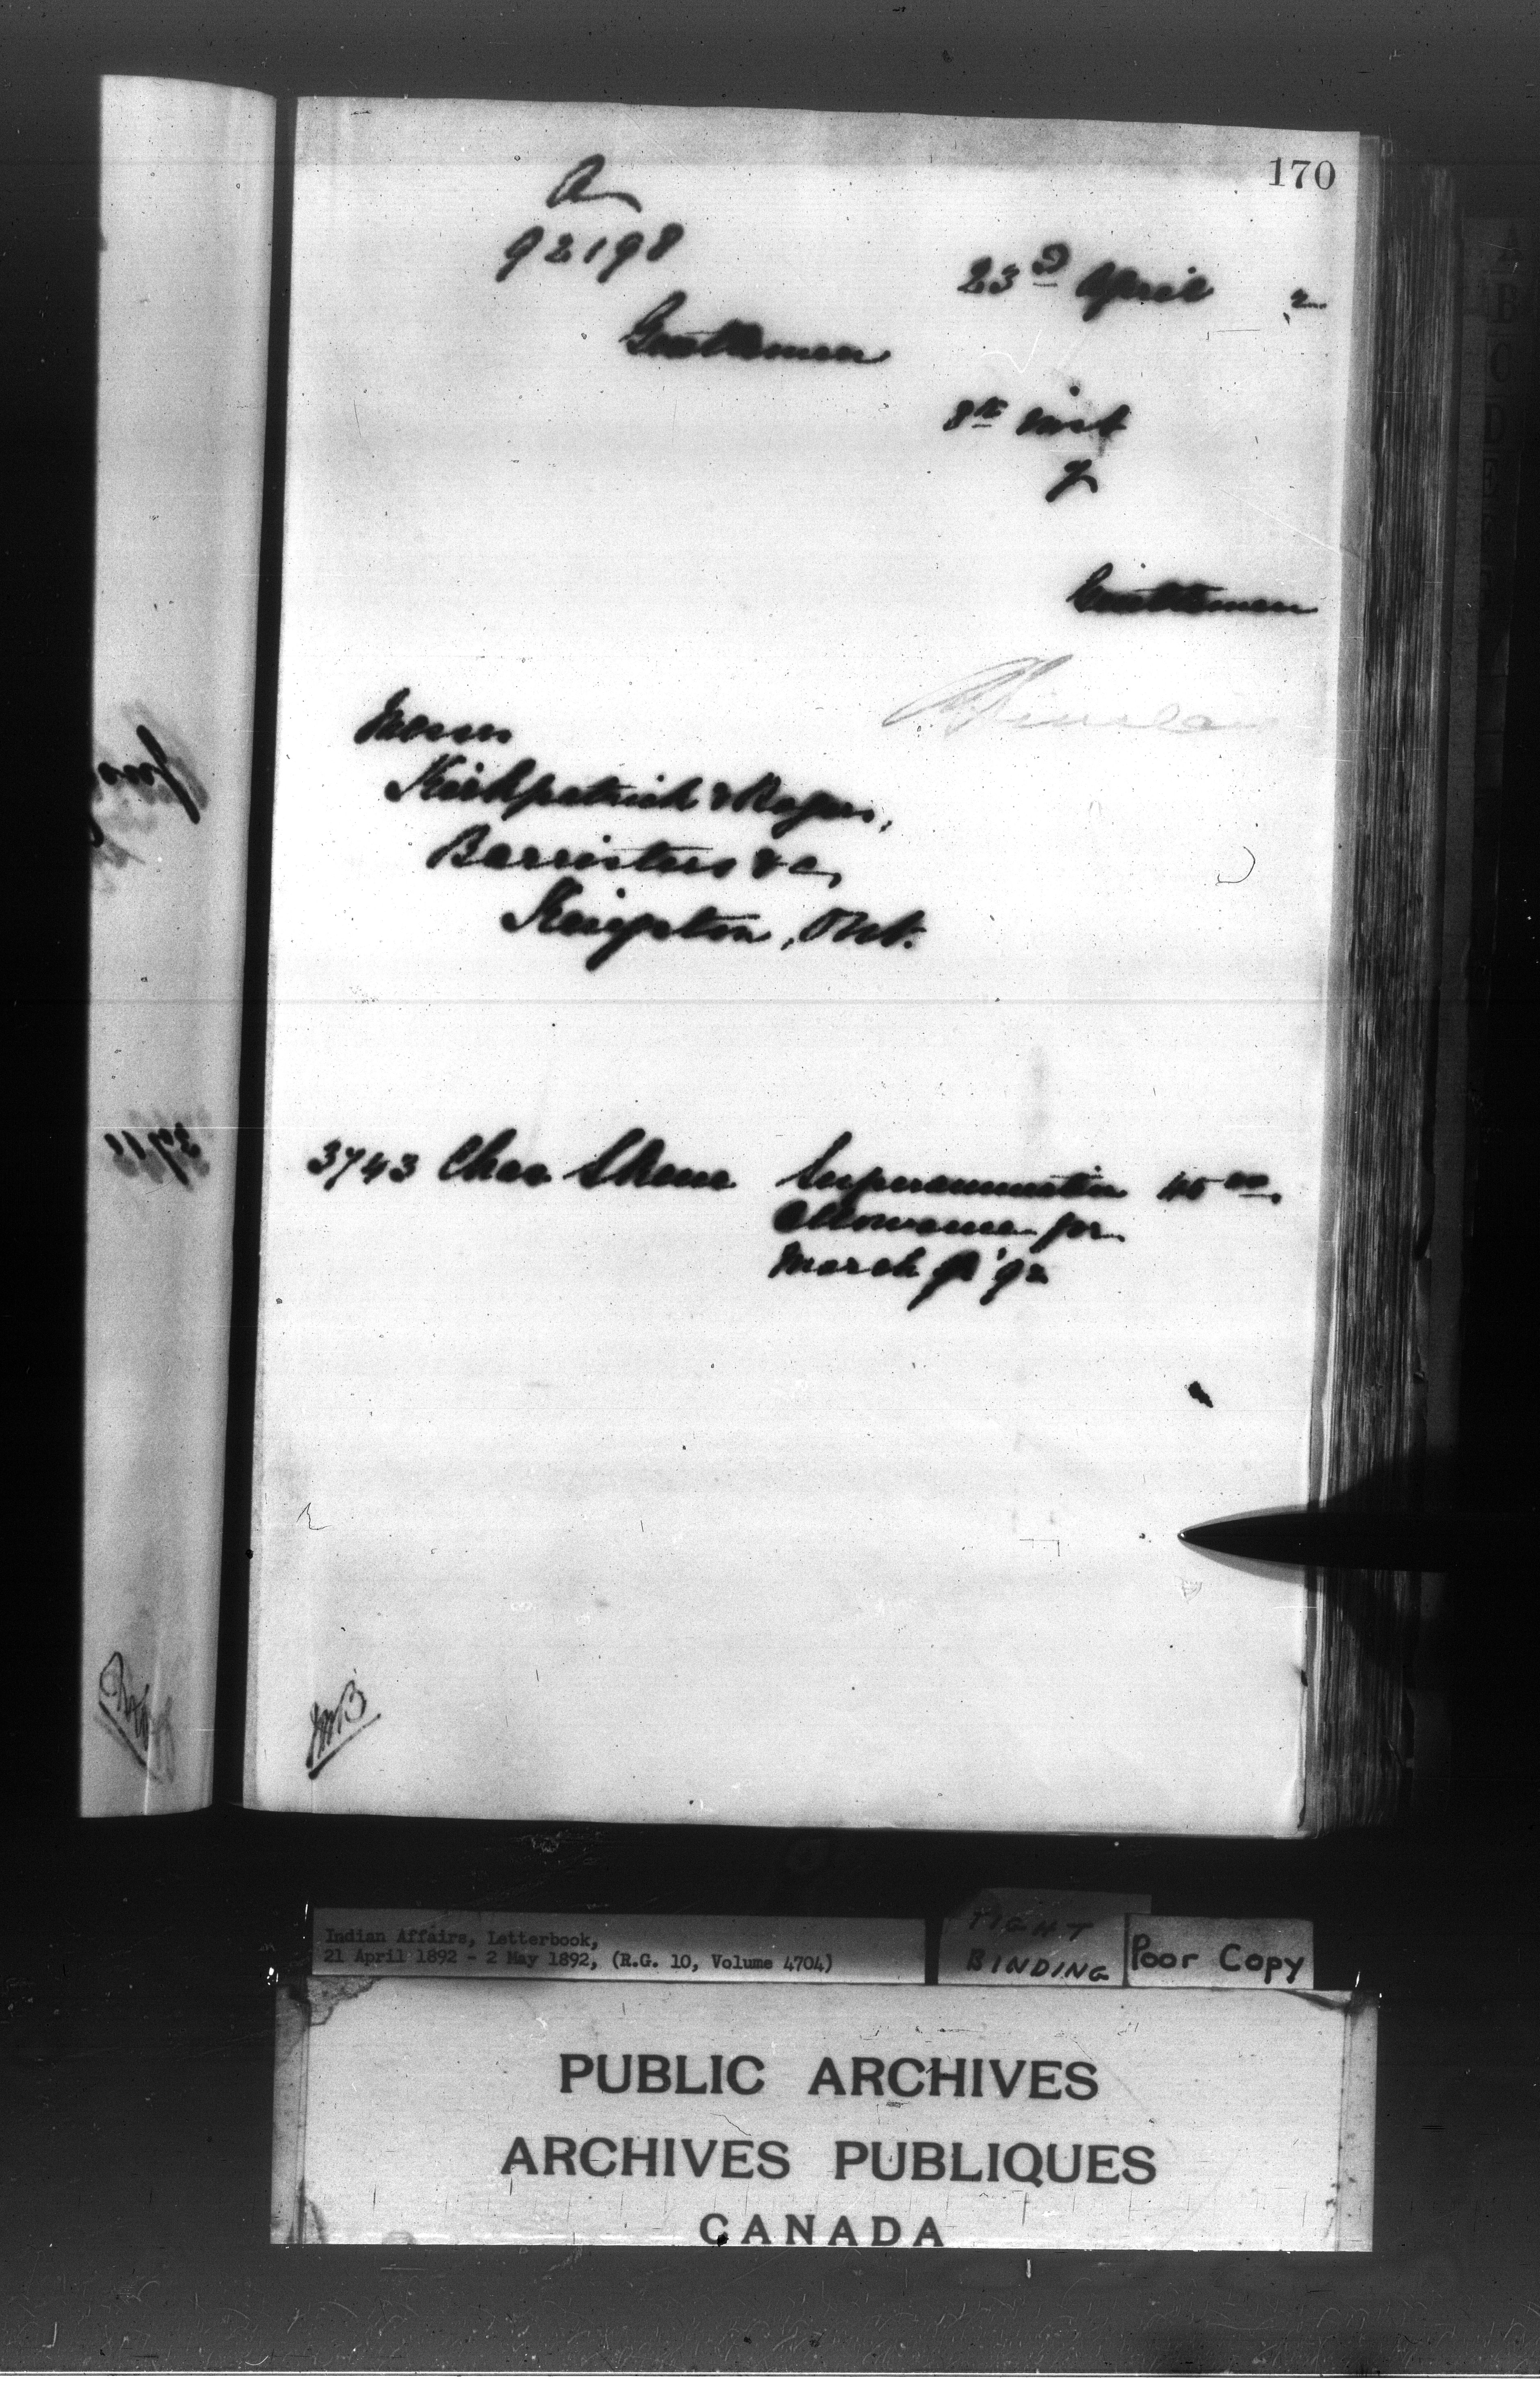 170
A
92198
23rd April 2
Gentlemen
8th inst
Gentlemen
Messrs
Kirkpatrick & Rogers,
Barristers &c,
Kingston, Ont.
3743 Chas Skene Superannuation 45 00
Allowance for
March '92
Indian Affairs, Letterbook,
21 April 1892 - 2 May 1892, (R.G. 10, Volume 4704)
TIGHT
BINDING
Poor Copy
PUBLIC ARCHIVES
ARCHIVES PUBLIQUES
CANADA